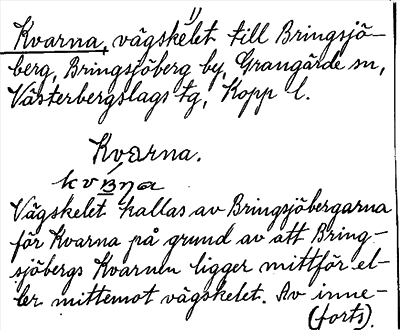 Kvarna, vägskelet till Bringsjö-
berg, Bringsjöberg by, Grangärde sn,
Västerbergslags tg, Kopp l.
Kvarna.
Vägskelet kallas av Bringsjöbergarna
för Kvarna på grund av att Bring-
sjöbergs Kvarnen ligger mittför el-
ler mittemot vägskelet. Av inne-
(forts).